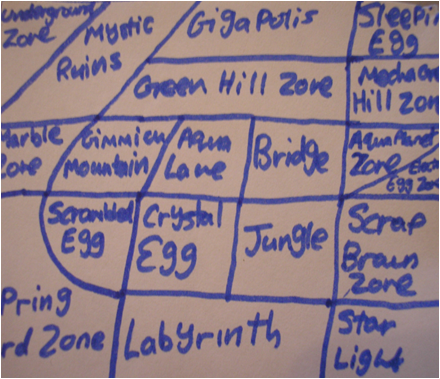 Underground
Zone
Mystic
Ruins
GigaPolis
Sleepi
Egg
Green Hill Zone
Mecha Gr
Hill Zon
Marble
Zone
Gimmick
Mountain
Aqua
Lane
Bridge
Aqua Planet
Zone
Egg Zone
Scrambled
Egg
Crystal
Egg
Jungle
Scrap
Brain
Zone
Pring
rd Zone
Labyrinth
Star
Light